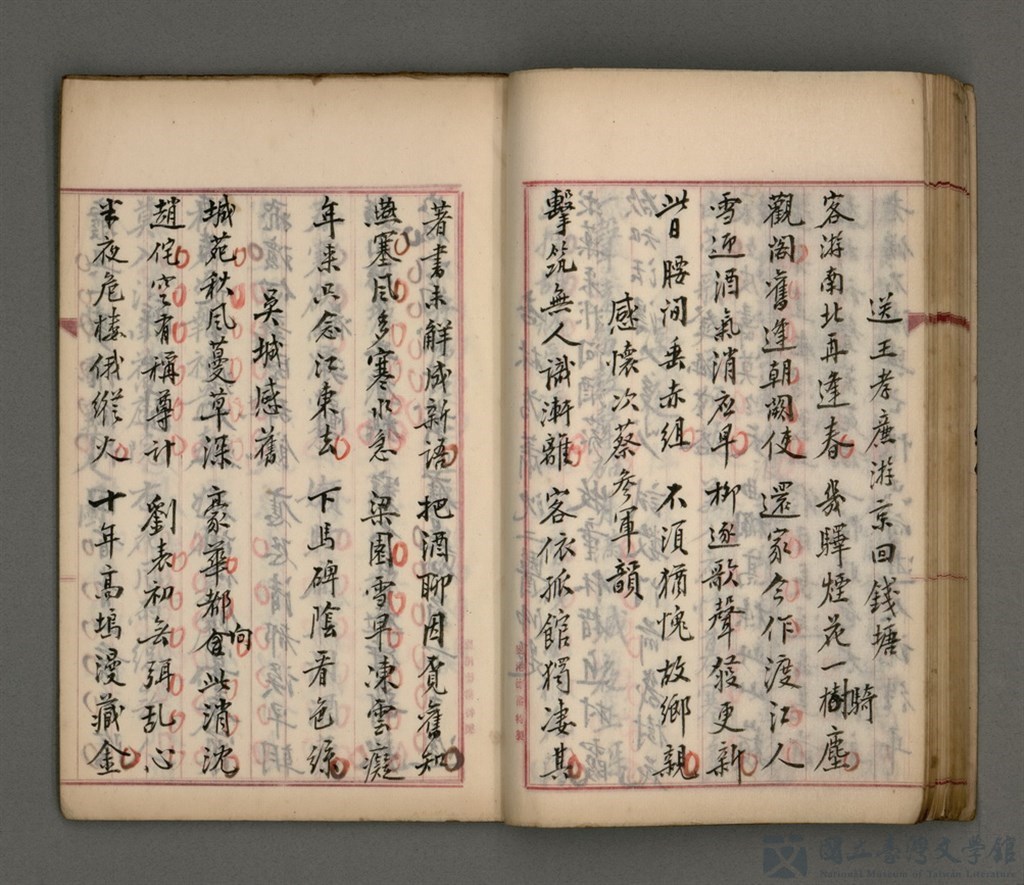 送王孝廉游京回錢塘
客游南北再逢春 幾驛煙花一樹塵
騎
觀閣舊逢朝闕使 還家今作渡江人
雪迎酒氣消應早 柳逐歌聲發更新
昔日腰間垂赤組 不須猶愧故鄉親
感懷次蔡參軍韻
擊筑無人識漸離 客依孤館獨凄其
著書未解成新語 把酒聊因覓舊知
燕塞風多寒水急 梁園雪早凍雲癡
年來只念江東去 下馬碑陰看色絲
吳城感舊
城苑秋風蔓草深 豪華都會此消沈
向
趙佗空有稱尊計 劉表初無弭亂心
半夜危樓俄縱火 十年高塢漫藏金
國立臺灣文學館
National Museum of Taiwan Literature